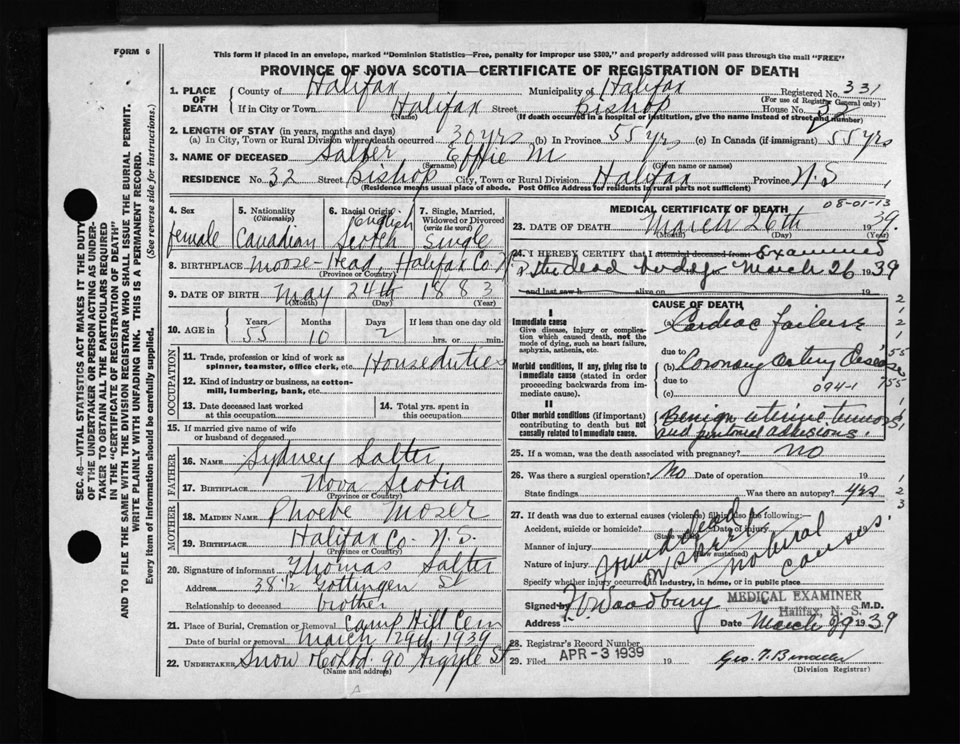 FORM 6
This form if placed in an envelope, marked "Dominion Statistics—Free, penalty for improper use $300," and properly addressed will pass through the mail "FREE"
PROVINCE OF NOVA SCOTIA—CERTIFICATE OF REGISTRATION OF DEATH
1. PLACE OF DEATH County of Halifax Municipality of Halifax Registered No. 331
(For use of Registrar General only)
If in City or Town Halifax Street Bishop House No. 32
(Name) (If death occurred in a hospital or institution, give the name instead of street and number)
2. LENGTH OF STAY (in years, months and days)
(a) In City, Town or Rural Division where death occurred 30 yrs (b) In Province 55 yrs (c) In Canada (if immigrant) 55 yrs
3. NAME OF DECEASED Salter Effie M
(Surname) (Given name or names)
RESIDENCE No. 32 Street Bishop City, Town or Rural Division Halifax Province N.S
(Residence means usual place of abode. Post Office Address for residents in rural parts not sufficient)
4. Sex female
5. Nationality (Citizenship) Canadian
6. Racial Origin English Scotch
7. Single, Married, Widowed or Divorced (write the word) Single
8. BIRTHPLACE Moose-Head, Halifax Co N.S
(Province or Country)
9. DATE OF BIRTH May 24th 1883
(Month) (Day) (Year)
10. AGE in Years 55 Months 10 Days 2 If less than one day old
hrs. or min.
OCCUPATION
11. Trade, profession or kind of work as spinner, teamster, office clerk, etc. Houseduties
12. Kind of industry or business, as cotton-mill, lumbering, bank, etc.
13. Date deceased last worked at this occupation
14. Total yrs. spent in this occupation
15. If married give name of wife or husband of deceased
FATHER
16. Name Sydney Salter
17. Birthplace Nova Scotia
(Province or Country)
MOTHER
18. Maiden Name Phoebe Moser
19. Birthplace Halifax Co. N.S.
(Province or Country)
20. Signature of informant Thomas Salter
Address 38½ Gottingen St
Relationship to deceased brother
21. Place of Burial, Cremation or Removal Camp Hill Cem
Date of burial or removal March 29th 1939
22. UNDERTAKER Snow 90 Argyle St
(Name and address)
08-01-13
MEDICAL CERTIFICATE OF DEATH
23. DATE OF DEATH March 26th 1939
(Month) (Day) (Year)
24. I HEREBY CERTIFY that I attended deceased from Examined
the dead body March 26 1939
and last saw h alive on 19
CAUSE OF DEATH
I
Immediate cause
Give disease, injury or complication which caused death, not the mode of dying, such as heart failure, asphyxia, asthenia, etc.
(a) Cardiac failure
due to
Morbid conditions, if any, giving rise to immediate cause (stated in order proceeding backwards from immediate cause).
(b) Coronary Artery Disease
due to 094-1
(c)
II
Other morbid conditions (if important) contributing to death but not causally related to immediate cause.
Benign uterine tumor
and peritoneal adhesions.
25. If a woman, was the death associated with pregnancy? no
26. Was there a surgical operation? No Date of operation 19
State findings Was there an autopsy? yes
27. If death was due to external causes (violence) fill in also the following:—
Accident, suicide or homicide? Date of injury 19
Manner of injury
Nature of injury
Specify whether injury occurred in industry, in home, or in public place
found dead
on street
natural
causes
Signed by Woodbury M.D.
MEDICAL EXAMINER
Halifax, N. S.
Address Date March 29 1939
28. Registrar's Record Number
29. Filed APR - 3 1939 19
(Division Registrar)
SEC. 46—VITAL STATISTICS ACT MAKES IT THE DUTY
OF THE UNDERTAKER OR PERSON ACTING AS UNDER-
TAKER TO OBTAIN ALL THE PARTICULARS REQUIRED
IN THE "CERTIFICATE OF REGISTRATION OF DEATH"
AND TO FILE THE SAME WITH THE DIVISION REGISTRAR WHO SHALL ISSUE THE BURIAL PERMIT.
WRITE PLAINLY WITH UNFADING INK. THIS IS A PERMANENT RECORD.
Every item of information should be carefully supplied. (See reverse side for instructions.)